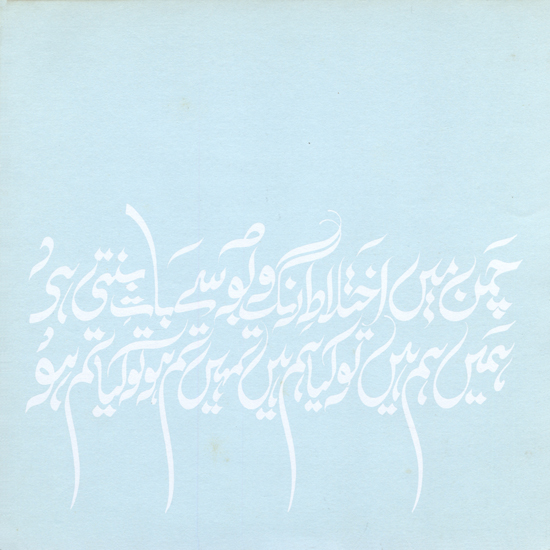 چمن میں اختلاطِ رنگ و بو سے بات بنتی ہے
ہمیں ہم ہیں تو کیا ہم ہیں تمہیں تم ہو تو کیا تم ہو